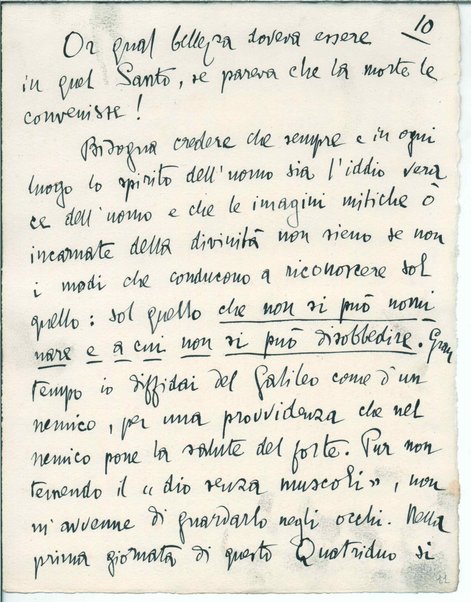 10
Or qual bellezza doveva essere
in quel Santo, se pareva che la morte le
convenisse!
Bisogna credere che sempre e in ogni
luogo lo spirito dell'uomo sia l'iddio vera
ce dell'uomo e che le imagini mitiche o
incarnate della divinità non sieno se non
i modi che conducono a riconoscere sol
quello: sol quello che non si può nomi
nare e a cui non si può disobbedire. Gran
tempo io diffidai del Galileo come d'un
nemico, per una provvidenza che nel
nemico pone la salute del forte. Pur non
temendo il « dio senza muscoli », non
m'avvenne di guardarlo negli occhi. Nella
prima giornata di questo Quatriduo si